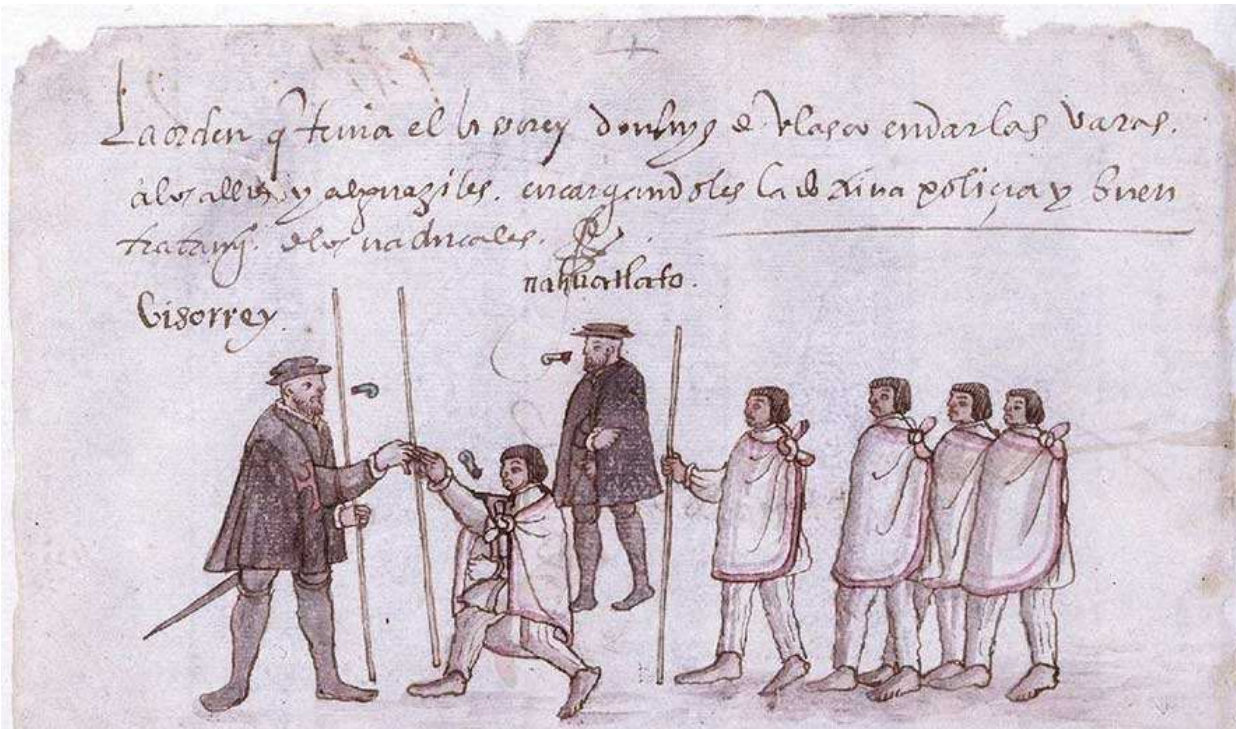 La orden q̃ tenia el bisorrey don luys de Velasco en dar las varas.
a los alldes y alguaziles. encargandoles la doctrina policia y buen
tratamyº. de los naturales.
nahuatlato.
Visorrey.